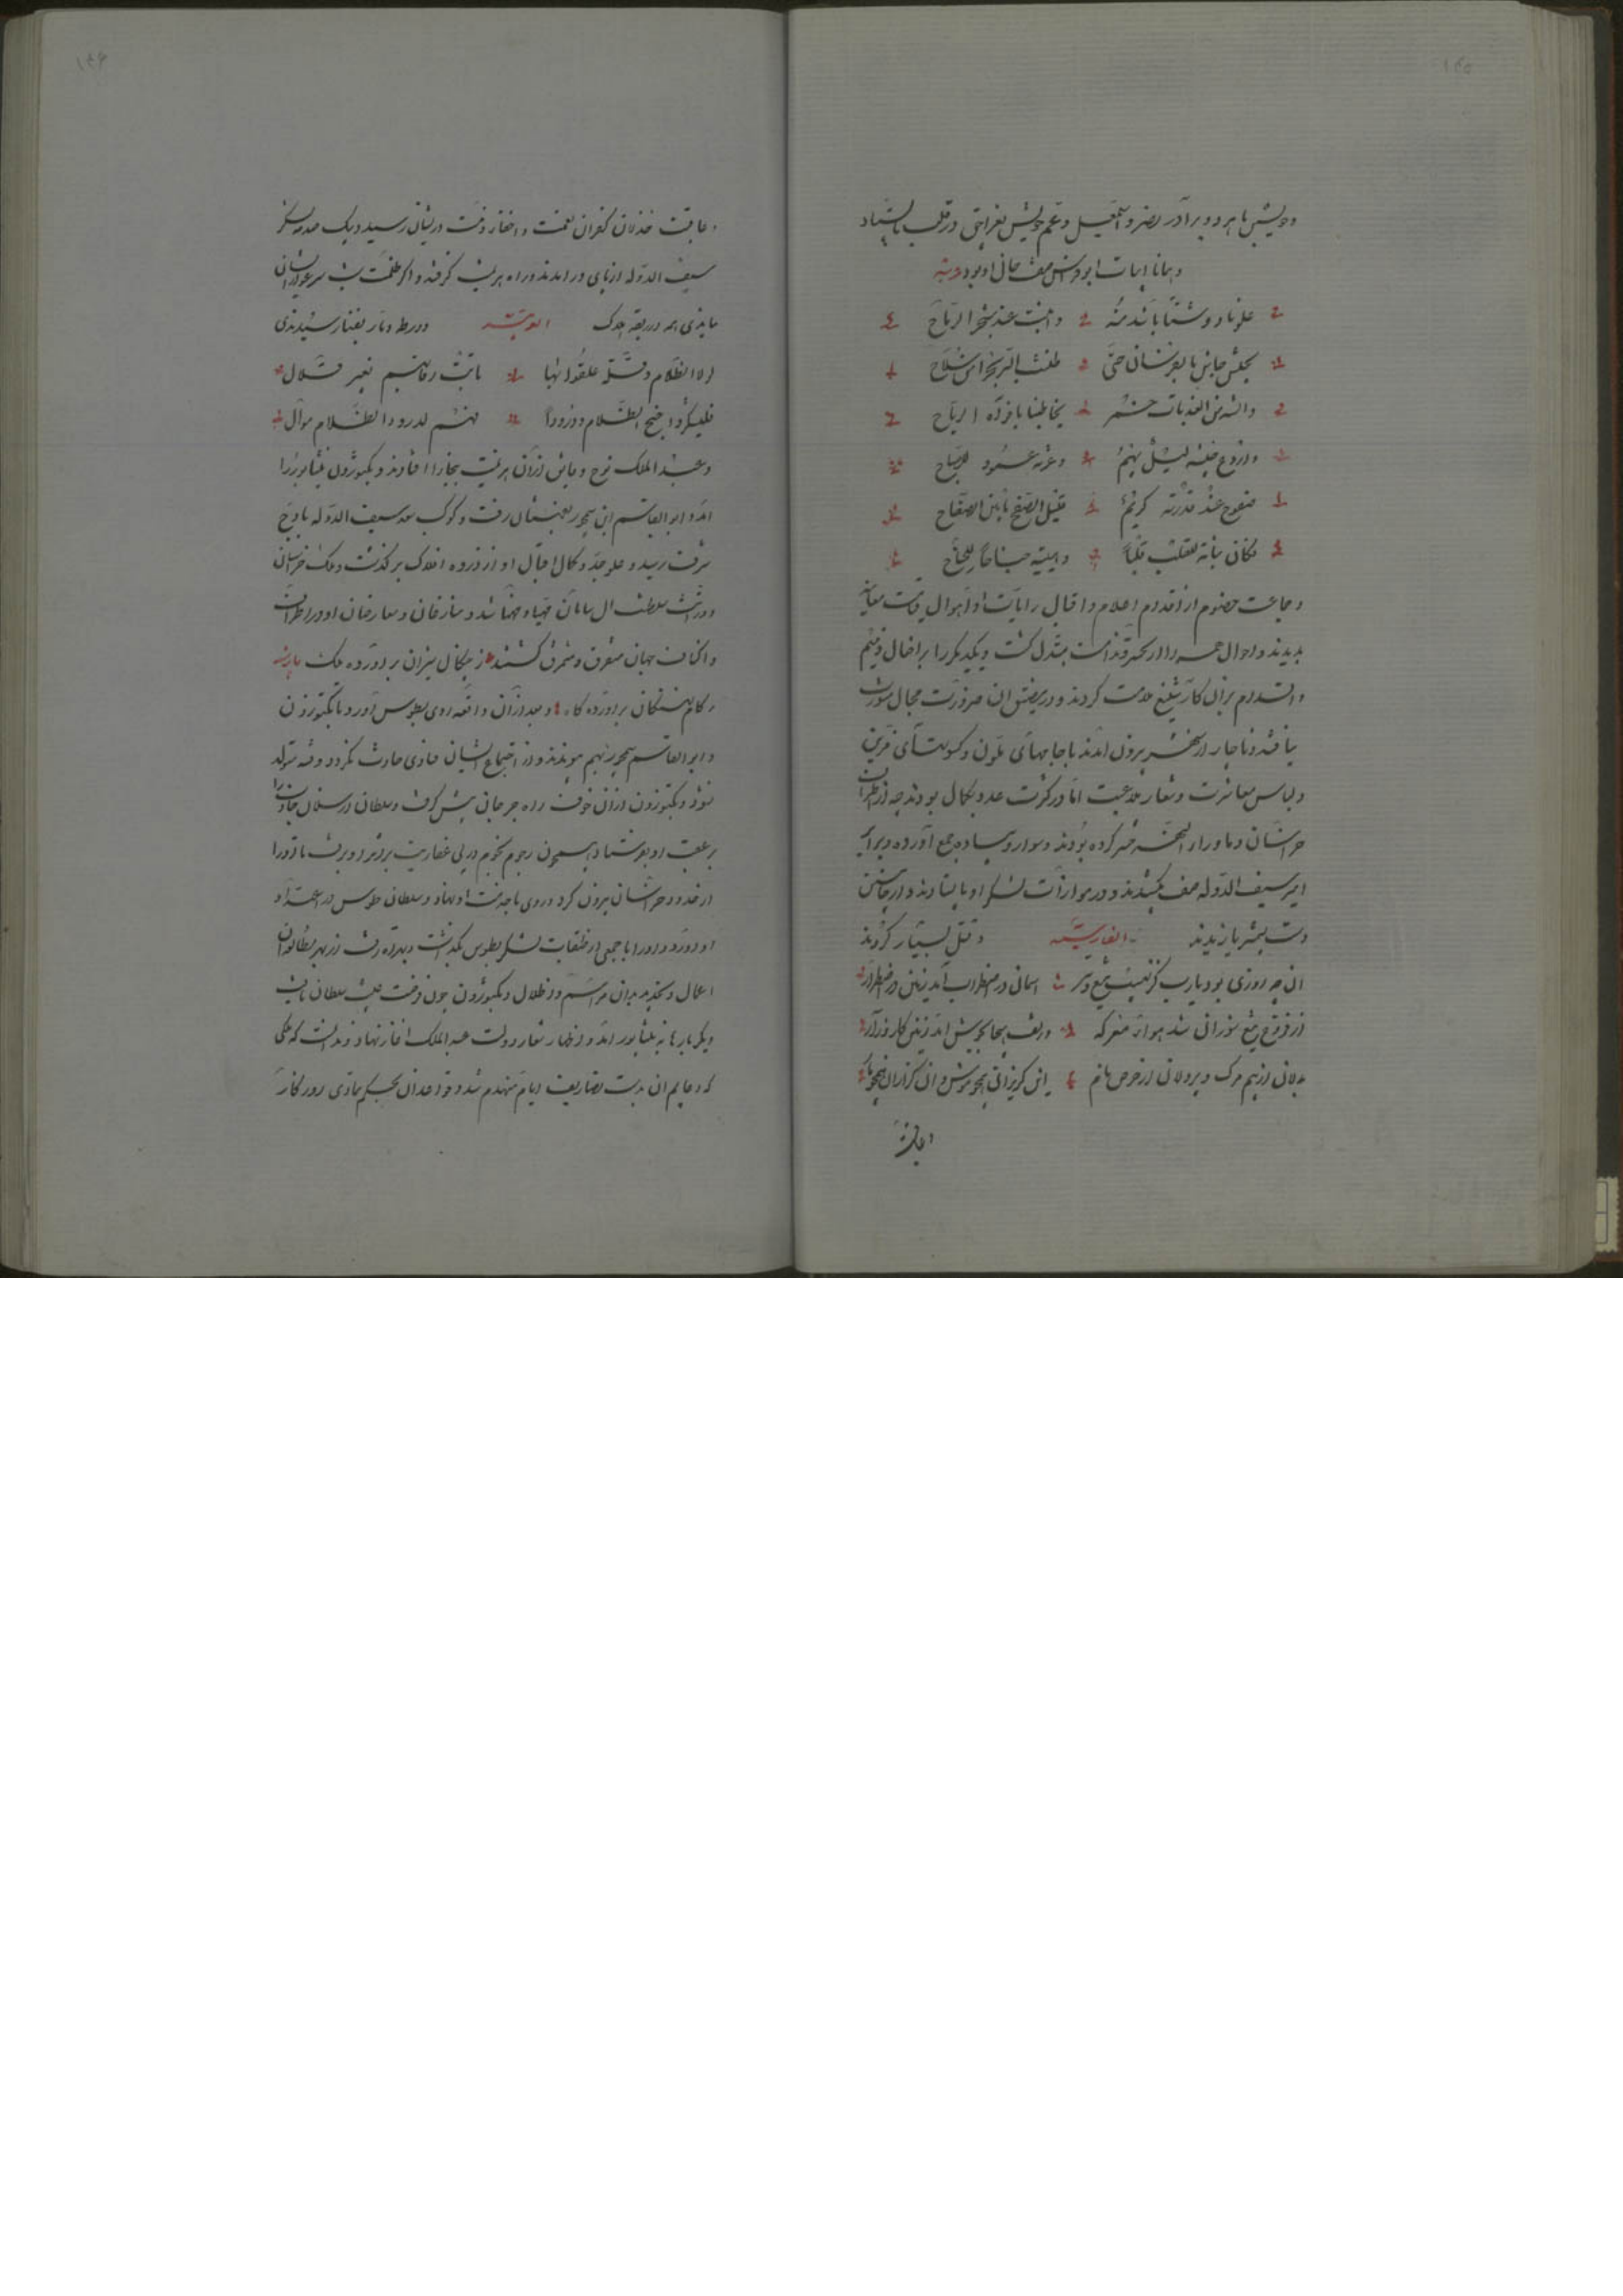 ۱۴۵
و خویش با هر دو برادر نصر و اسمعیل و عم خویش بغراجق در قلب بایستاد
و همانا ابیات ابو فراس صف حال او بود عربیه
علونا دوشنا باشد منه و اثبت عند مشتجر الرماح
بجیش جاش بالفرسان حتی ظننت البر بحرا من سلاح
و السنة من العذبات حمر یخاطبنا بافواه الریاح
و اروع جیشه لیل بهیم و غرته عمود للصباح
صفوح عند قدرته کریم قلیل الصفح ما بین الصفاح
فکان ثباته للقلب قلبا و هیبته جناحا للجناح
و جماعت خصوم از اقدام اعلام و اقبال رایات او اهوال قیامت معاینه
بدیدند و احوال همه را از تحیر و ندامت متبدل گشت و یکدیگر را بر افعال ذمیم
و اقدام بر ان کار شنیع ملامت کردند و در مضیق ان ضرورت مجال مشورت
نیافتند و ناچار از شهر بیرون آمدند با جامهای ملون و کسوتهای مزین
و لباس معاشرت و شعار ملاعبت اما در کثرت عدد بکمال بودند چه از اطراف
خراسان و ماوراء النهر حشر کرده بودند و سوار و پیاده جمع آورده و برابر
امیر سیف الدوله صف کشیدند و در موازات لشکر او بایستادند و از جانبین
دست بشمشیر یازیدند الفارسیه و قتل بسیار کردند
ان چه روزی بود یارب کز نهیب تیغ و تیر اسمان در اضطراب آمد زمین در اضطرار
از فروغ تیغ نورانی شد هوا در معرکه وز تف هیجا بجوش آمد زمین کارزار
بددلان از بیم مرگ و پردلان از حرص نام این گریزان همچو موش و ان گرازان همچو مار
و عاقبت
۱۴۶
و عاقبت خذلان کفران نعمت و اخفار ذمت در ایشان رسید و بیک صدمه لشکر
سیف الدوله از پای درامدند و راه هزیمت گرفتند و اگر ظلمت شب سر عوار ایشان
ماندی همه در ربقه هلاک العربیه و ورطه دمار بفنا رسیدندی
لولا الظلام و قلة علقوا بها باتت رقابهم بغیر قلال
فلیشکروا جنح الظلام و دروذا فهم لدروذ و الظلام موال
و عبد الملک نوح و فایق از آن هزیمت ببخارا افتادند و بکتوزون بنیشابور
آمد و ابو القاسم ابن سیمجور بقهستان رفت و کوکب سعد سیف الدوله باوج
شرف رسید و علو جد و کمال اقبال او از ذروه افلاک برگذشت و ملک خراسان
و وراثت سلطنت ال سامان مهیا و مهنا شد و منازعان و معارضان او در اطراف
و اکناف جهان متفرق و متمزق گشتند از چنگال شیران برآورده ملک پارسیه
ز کام نهنگان برآورده کام و بعد از آن واقعه روی بطوس آورد تا بکتوزون
و ابو القاسم سیمجور بهم نپیوندند و از اجتماع ایشان فسادی حادث نگردد و فتنه متولد
نشود و بکتوزون از آن خوف راه جرجان پیش گرفت و سلطان ارسلان جاذب را
بر عقب او بفرستاد تا همچون رجوم نجوم در پی عفاریت بر اثر او برفت تا او را
از حدود خراسان بیرون کرد و روی با خدمت او نهاد و سلطان طوس در اعتداد
او آورد و او را با جمعی از طبقات لشکر بطوس بگذاشت و بهراة رفت از بهر مطالعه ان
اعمال و تجدید بدان مراسم و اظلال و بکتوزون چون فرصت غیبت سلطان یافت
دیگر باره به نیشابور آمد و اظهار شعار دولت عبد الملک آغاز نهاد و ندانست که ملکی
که دعایم ان بدست تصاریف ایام منهدم شد و قواعد ان بحکم تمادی روزگار